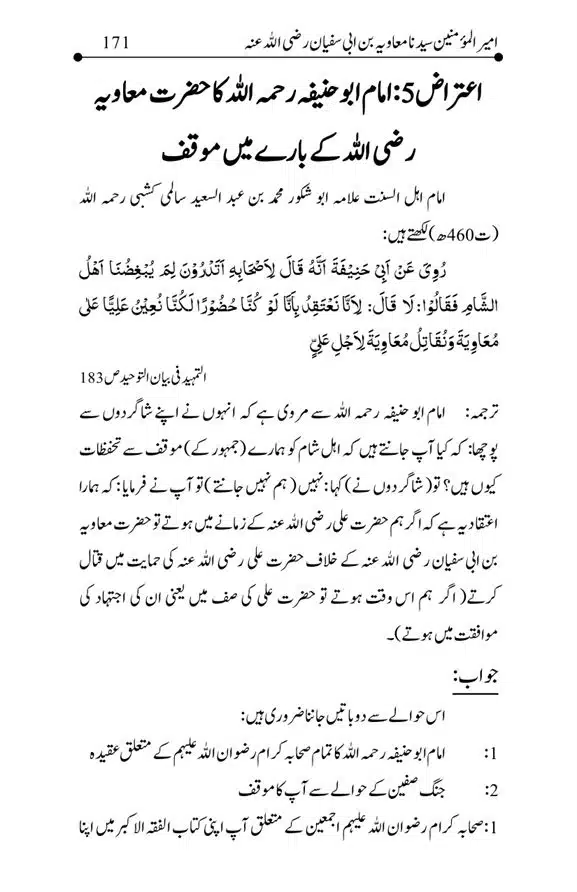 امیر المؤمنین سیدنا معاویہ بن ابی سفیان رضی اللہ عنہ 171
اعتراض5: امام ابو حنیفہ رحمہ اللہ کا حضرت معاویہ
رضی اللہ کے بارے میں موقف
امام اہل السنت علامہ ابو شکور محمد بن عبد السعید سالمی کشبی رحمہ اللہ
(ت460ھ) لکھتے ہیں:
رُوِیَ عَنْ اَبِیْ حَنِیْفَةَ اَنَّهُ قَالَ لِاَصْحَابِهٖ اَتَدْرُوْنَ لِمَ یُبْغِضُنَا اَهْلُ
الشَّامِ فَقَالُوْا: لَا قَالَ: لِاَنَّا نَعْتَقِدُ بِاَنَّا لَوْ کُنَّا حُضُوْرًا لَکُنَّا نُعِیْنُ عَلِیًّا عَلٰی
مُعَاوِیَةَ وَنُقَاتِلُ مُعَاوِیَةَ لِاَجْلِ عَلِیٍّ
التمہید فی بیان التوحید ص183
ترجمہ: امام ابو حنیفہ رحمہ اللہ سے مروی ہے کہ انہوں نے اپنے شاگردوں سے
پوچھا: کہ کیا آپ جانتے ہیں کہ اہل شام کو ہمارے (جمہور کے) موقف سے تحفظات
کیوں ہیں؟ تو (شاگردوں نے) کہا: نہیں (ہم نہیں جانتے) تو آپ نے فرمایا: کہ ہمارا
اعتقاد یہ ہے کہ اگر ہم حضرت علی رضی اللہ عنہ کے زمانے میں ہوتے تو حضرت معاویہ
بن ابی سفیان رضی اللہ عنہ کے خلاف حضرت علی رضی اللہ عنہ کی حمایت میں قتال
کرتے (اگر ہم اس وقت ہوتے تو حضرت علی کی صف میں یعنی ان کی اجتہاد کی
موافقت میں ہوتے)۔
جواب:
اس حوالے سے دو باتیں جاننا ضروری ہیں:
1: امام ابو حنیفہ رحمہ اللہ کا تمام صحابہ کرام رضوان اللہ علیہم کے متعلق عقیدہ
2: جنگ صفین کے حوالے سے آپ کا موقف
1: صحابہ کرام رضوان اللہ علیہم اجمعین کے متعلق آپ اپنی کتاب الفقہ الاکبر میں اپنا